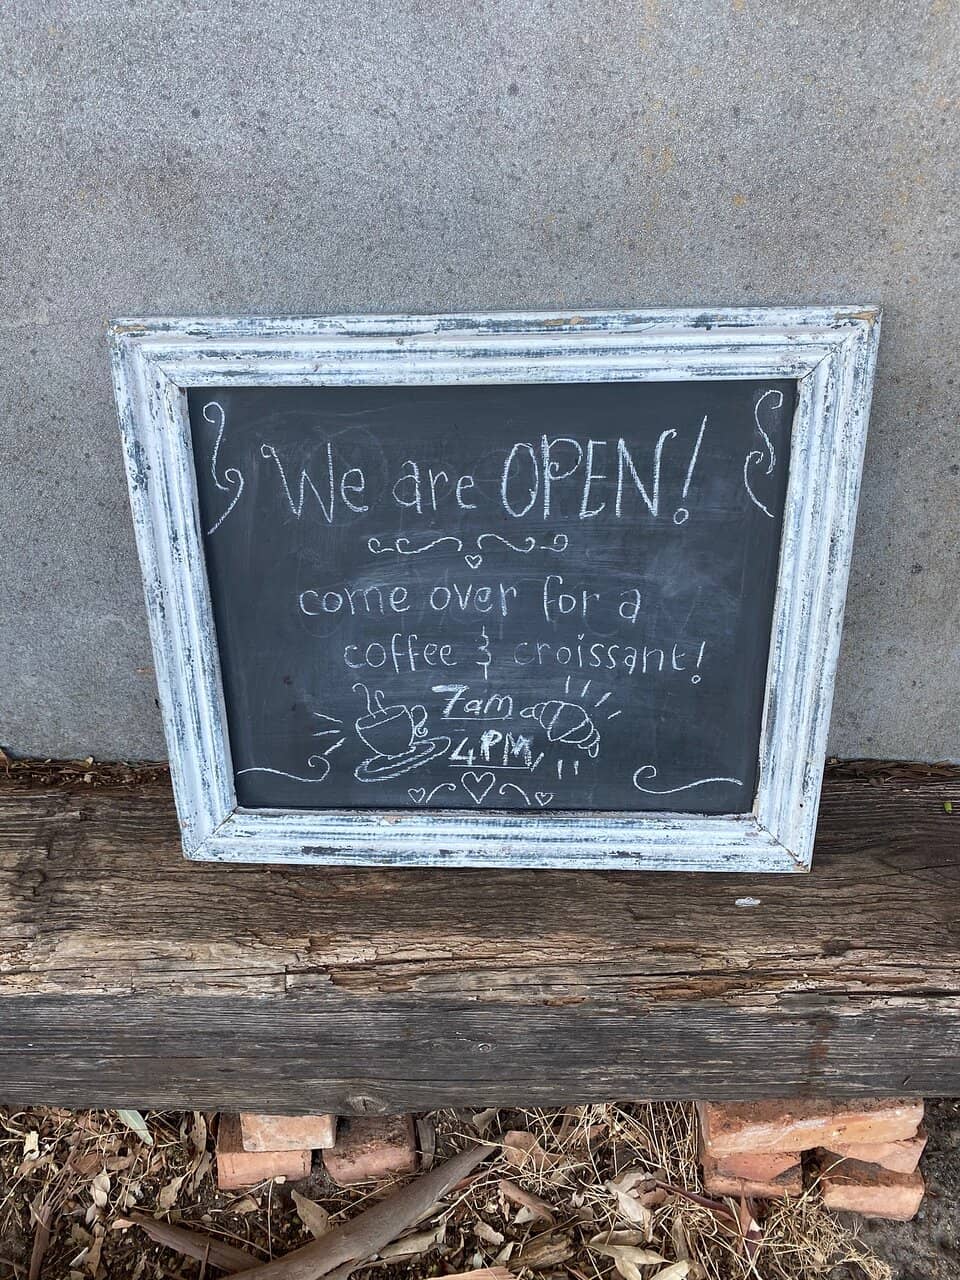 We are OPEN!
come over for a
coffee & croissant!
7am
4PM